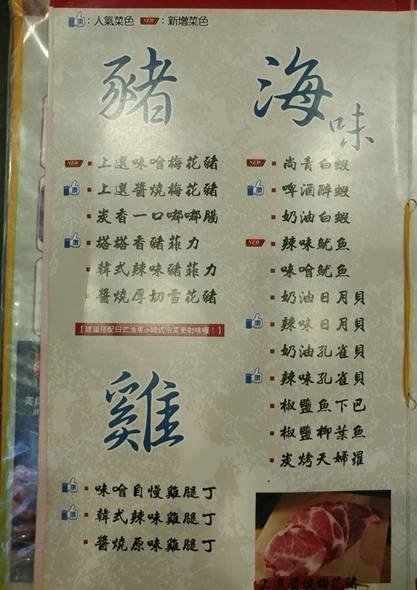 讚：人氣菜色 NEW：新增菜色
豬
NEW 上選味噌梅花豬
讚 上選醬燒梅花豬
炭香一口嘟嘟腸
讚 搭搭香豬菲力
韓式辣味豬菲力
醬燒厚切雪花豬
雞
讚 味噌自慢雞腿丁
讚 韓式辣味雞腿丁
醬燒原味雞腿丁
海味
NEW 尚青白蝦
讚 啤酒醉蝦
奶油白蝦
NEW 辣味魷魚
味噌魷魚
奶油日月貝
讚 辣味日月貝
奶油孔雀貝
讚 辣味孔雀貝
椒鹽魚下巴
椒鹽柳葉魚
炭烤天婦羅
上選醬燒梅花豬